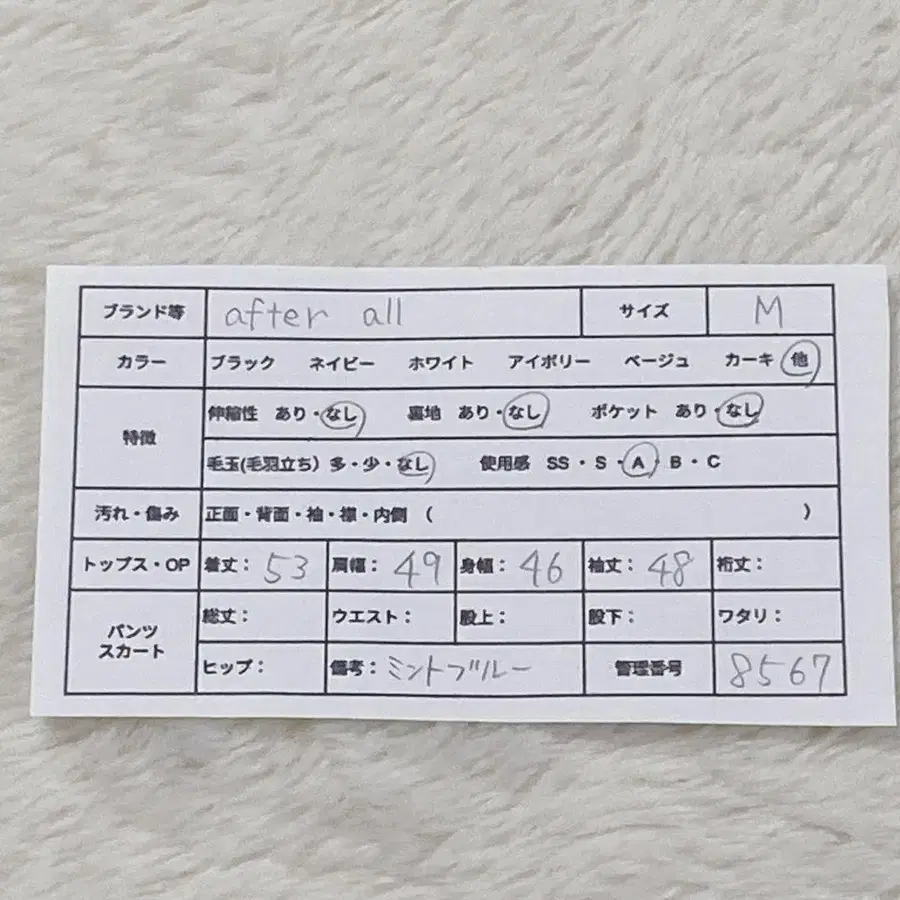 ブランド等 after all サイズ M
カラー ブラック ネイビー ホワイト アイボリー ベージュ カーキ 他
特徴 伸縮性 あり・なし 裏地 あり・なし ポケット あり・なし
毛玉(毛羽立ち) 多・少・なし 使用感 SS・S・A・B・C
汚れ・傷み 正面・背面・袖・襟・内側 ( )
トップス・OP 着丈: 53 肩幅: 49 身幅: 46 袖丈: 48 裄丈:
パンツ スカート 総丈: ウエスト: 股上: 股下: ワタリ:
ヒップ: 備考: ミントブルー 管理番号 8567